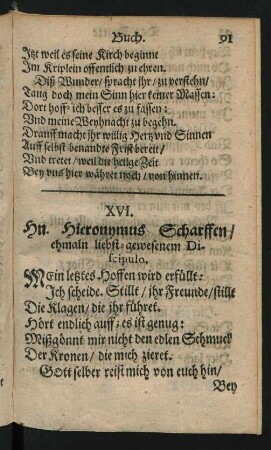 Buch. 91
Itzt weil es seine Kirch beginnt
Im Kriplein offentlich zu ehren.
Diß Wunder/ spracht ihr/ zu verstehn/
Taug doch mein Sinn hier keiner Massen:
Dort hoff' ich besser es zu fassen:
Und meine Weyhnacht zu begehn.
Drauff macht ihr willig Hertz und Sinnen
Auff selbst-benandte Frist bereit/
Und tretet/ weil die heilge Zeit
Bey uns hier währet noch/ von hinnen.
XVI.
Hn. Hieronymus Scharffen/
ehmaln liebst-gewesenem Di-
scipulo.
MEin letztes Hoffen wird erfüllt:
Ich scheide. Stillt/ ihr Freunde/ stillt
Die Klagen/ die ihr führet.
Hört endlich auff; es ist genug:
Mißgönnt mir nicht den edlen Schmuck
Der Kronen/ die mich zieret.
GOtt selber reist mich von euch hin/
Bey